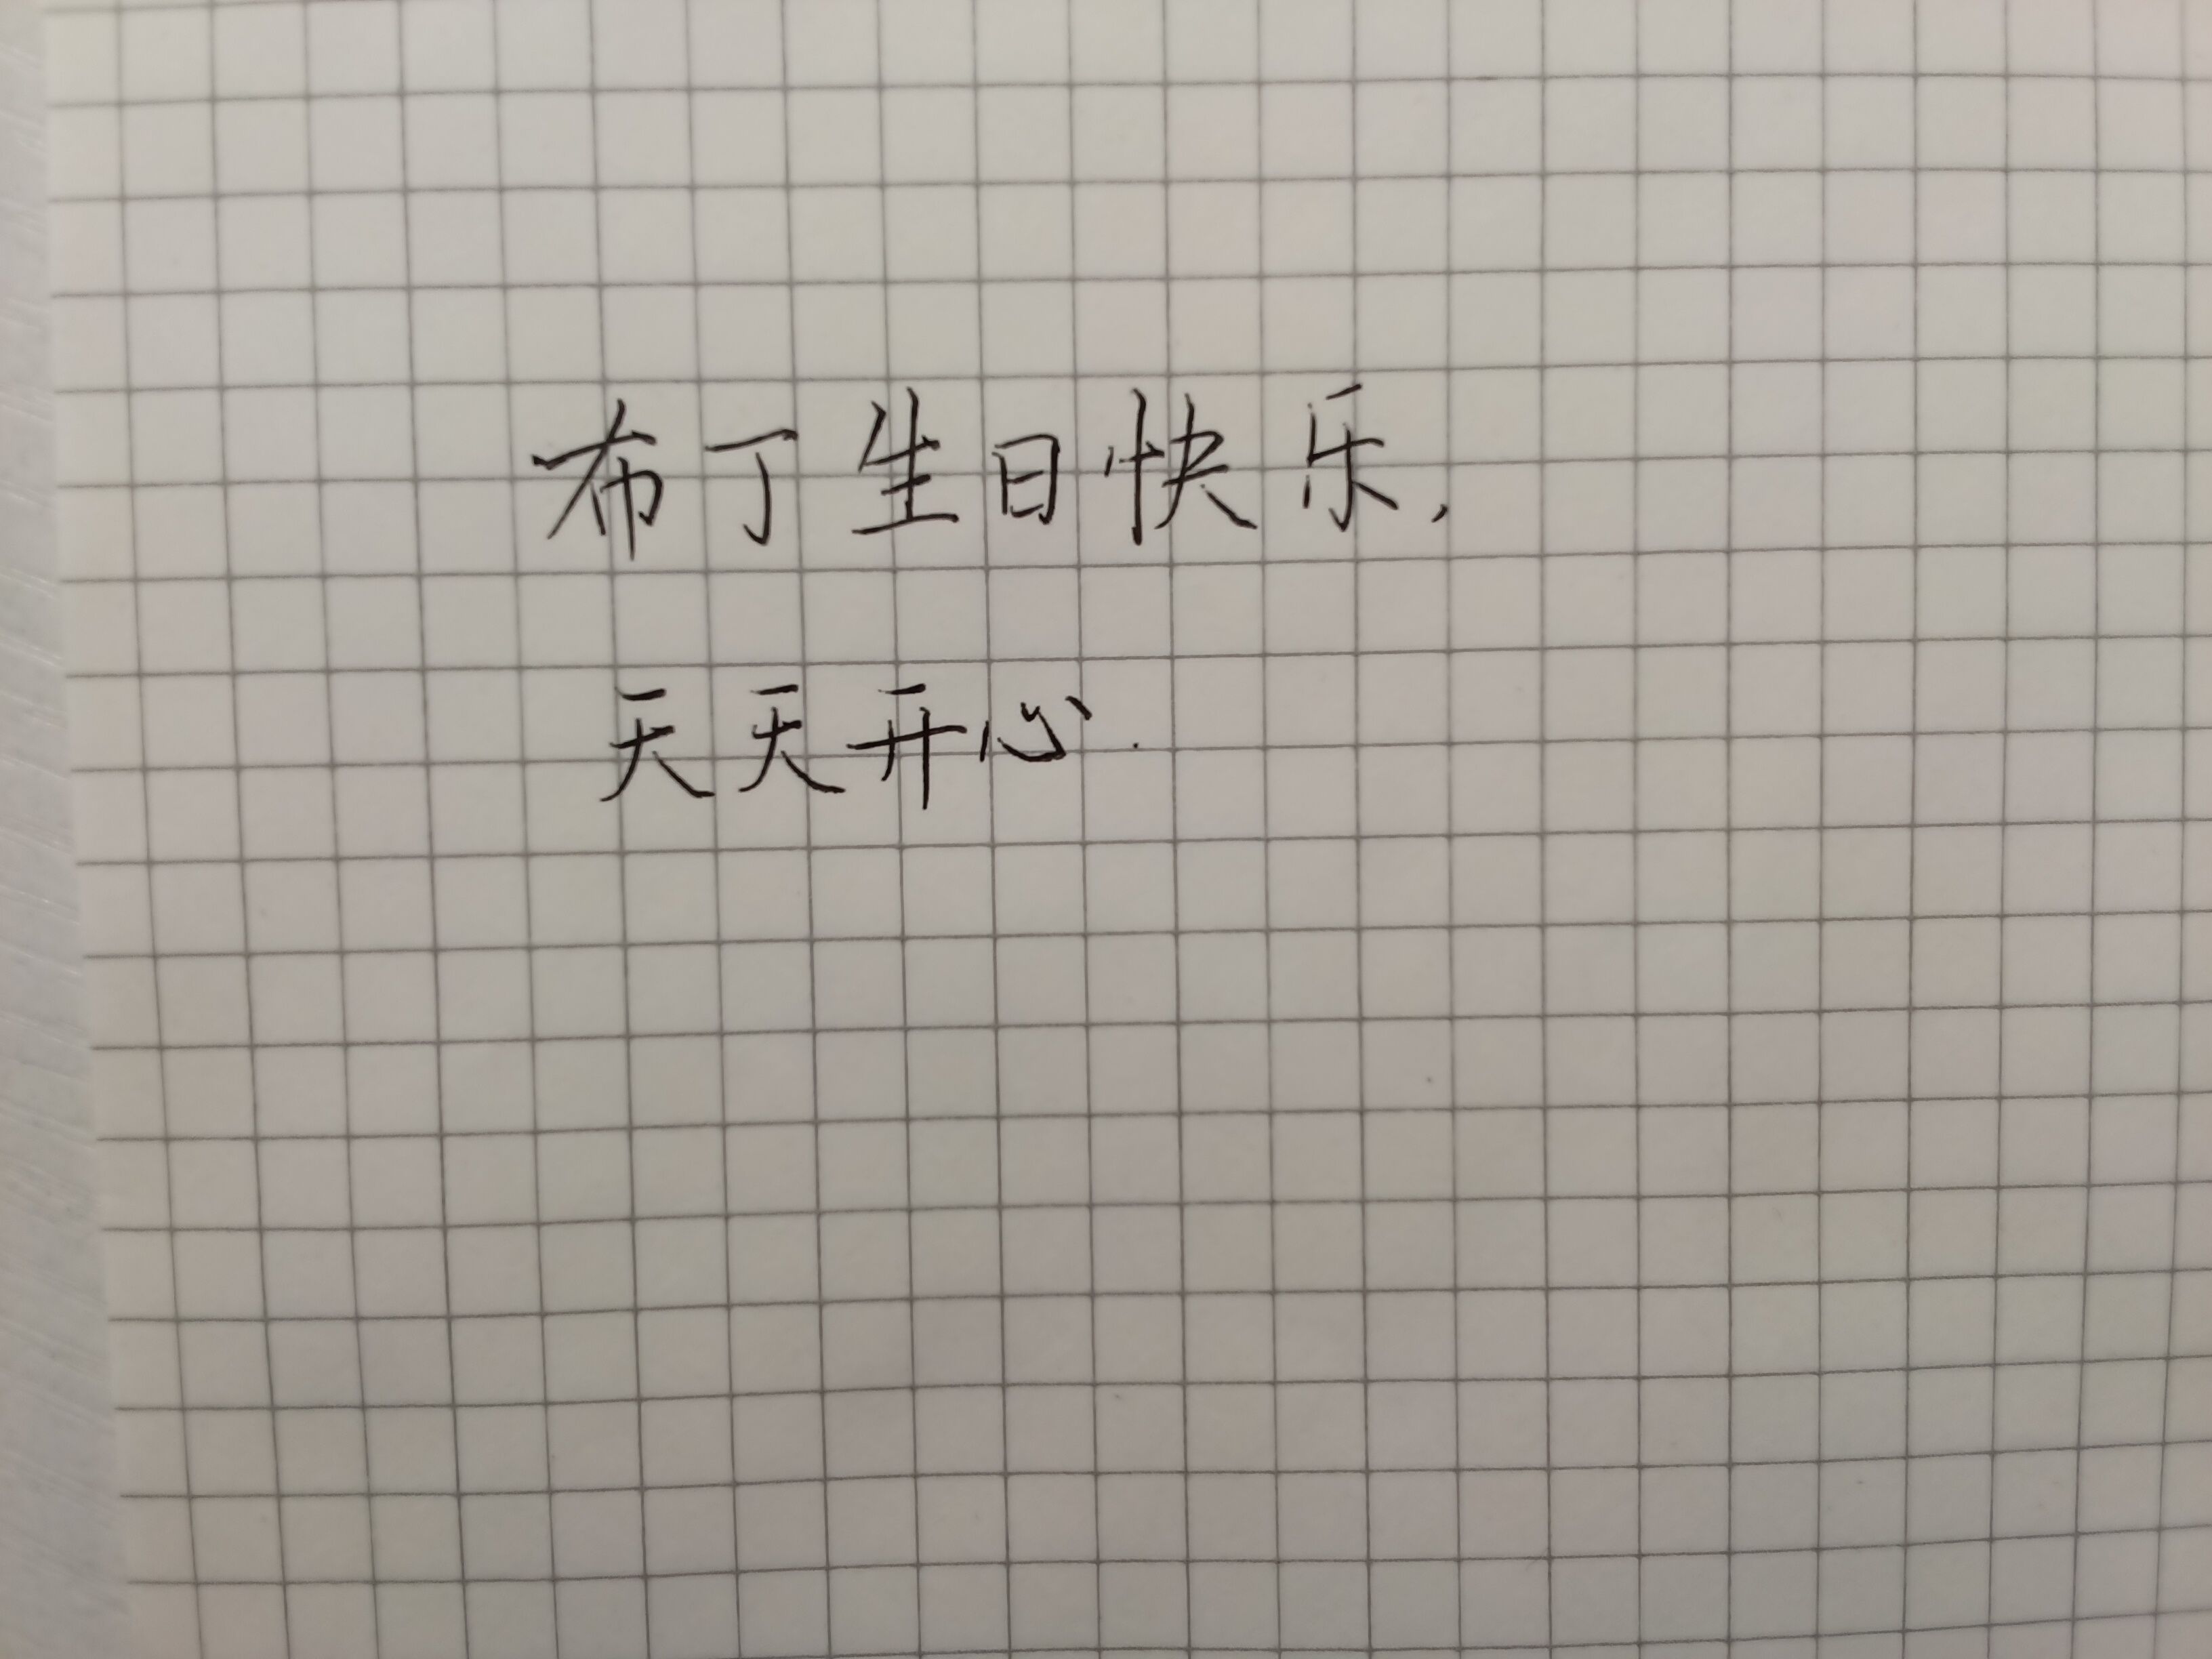 布丁生日快乐,
天天开心.